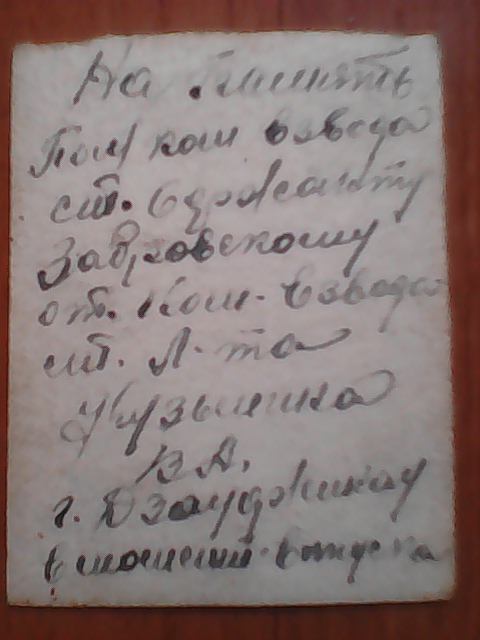 На Память
Пом ком взвода
ст. Сержанту
Завровскому
от. Ком. взвода
ст. Л-та
Кузьмина
В.А.
г. Дзауджикау
в момент отпуска